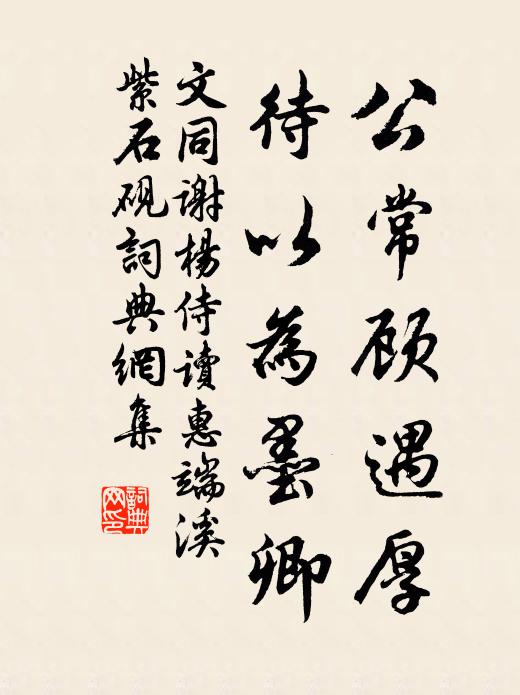 公常顾遇厚
待以為墨卿
文同謝楊侍讀惠端溪
紫石硯詞典網集
詞典网印